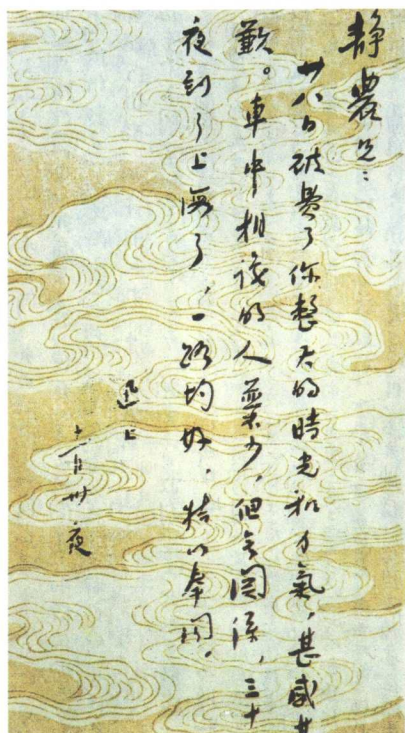 静農兄：
廿八日破費了你整天的時光和力氣，甚感甚
歉。車中相識的人並不少，但無關係，三十
夜到了上海了，一路均好，特以奉聞。
迅上
十一月卅夜